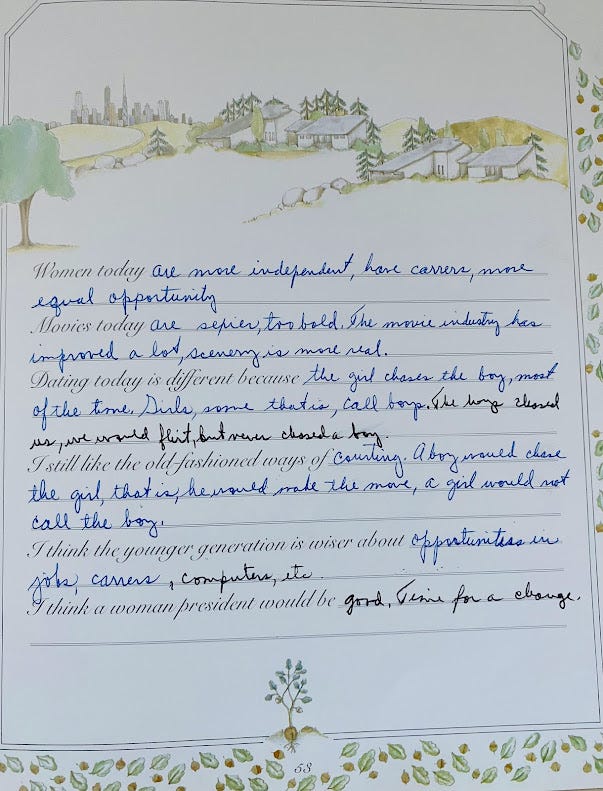 Women today are more independent, have carrers, more
equal opportunity
Movies today are sexier, too bold. The movie industry has
improved a lot, scenery is more real.
Dating today is different because the girl chases the boy, most
of the time. Girls, some that is, call boys. The boys chased
us, we would flirt, but never chased a boy.
I still like the old-fashioned ways of courting. A boy would chase
the girl, that is, he would make the move, a girl would not
call the boy.
I think the younger generation is wiser about opportunities in
jobs, carrers, computers, etc.
I think a woman president would be good. Time for a change.
53